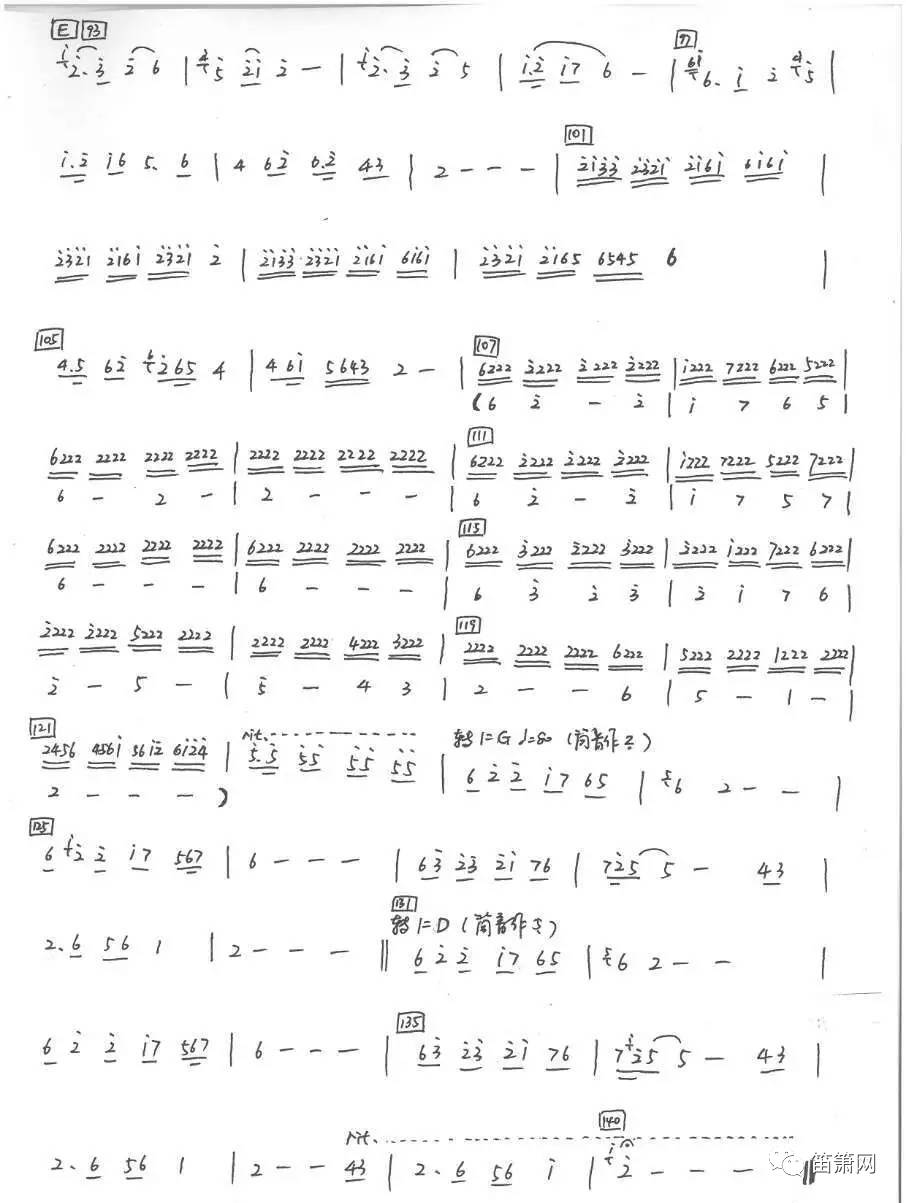 E 93
i 2. 3 2 6 | 4 5 21 2 — | i 2. 3 2 5 | 1.2 i7 6 — | 97 6i 6. i 2 4 5 |
i.2 i6 5. 6 | 4 62 6.2 43 | 2 — — — | 101 2i33 232i 2i6i 6i6i |
232i 2i6i 232i 2 | 2i33 232i 2i6i 6i6i | 232i 2i65 6545 6 |
105 4.5 62 6 265 4 | 4 6i 5643 2 — | 107 6222 2222 2222 2222 | i222 7222 6222 5222 |
(6 2 — 2 | i 7 6 5 |
6222 2222 2222 2222 | 2222 2222 2222 2222 | 111 6222 2222 2222 2222 | i222 7222 5222 7222 |
6 — 2 — | 2 — — — | 6 2 — 2 | i 7 5 7 |
6222 2222 2222 2222 | 6222 2222 2222 2222 | 115 6222 3222 2222 3222 | 3222 i222 7222 6222 |
6 — — — | 6 — — — | 6 3 2 3 | 2 i 7 6 |
2222 2222 5222 2222 | 2222 2222 4222 3222 | 119 2222 2222 2222 6222 | 5222 2222 1222 2222 |
2 — 5 — | 5 — 4 3 | 2 — — 6 | 5 — 1 — |
121 2456 456i 56i2 6i24 | rit. 5.5 55 55 55 | 转1=G ♩=80 (筒音作2) 6 2 2 i7 65 | 5 6 2 — — |
2 — — — )
125 6 i 2 2 i7 567 | 6 — — — | 63 23 2i 76 | 725 5 — 43 |
131 转1=D (筒音作5)
2. 6 56 1 | 2 — — — || 6 2 2 i7 65 | 5 6 2 — — |
6 2 2 i7 567 | 6 — — — | 135 63 23 2i 76 | 7 i 25 5 — 43 |
rit. 140
2. 6 56 1 | 2 — — 43 | 2. 6 56 i | i 2 — — — ||
笛箫网